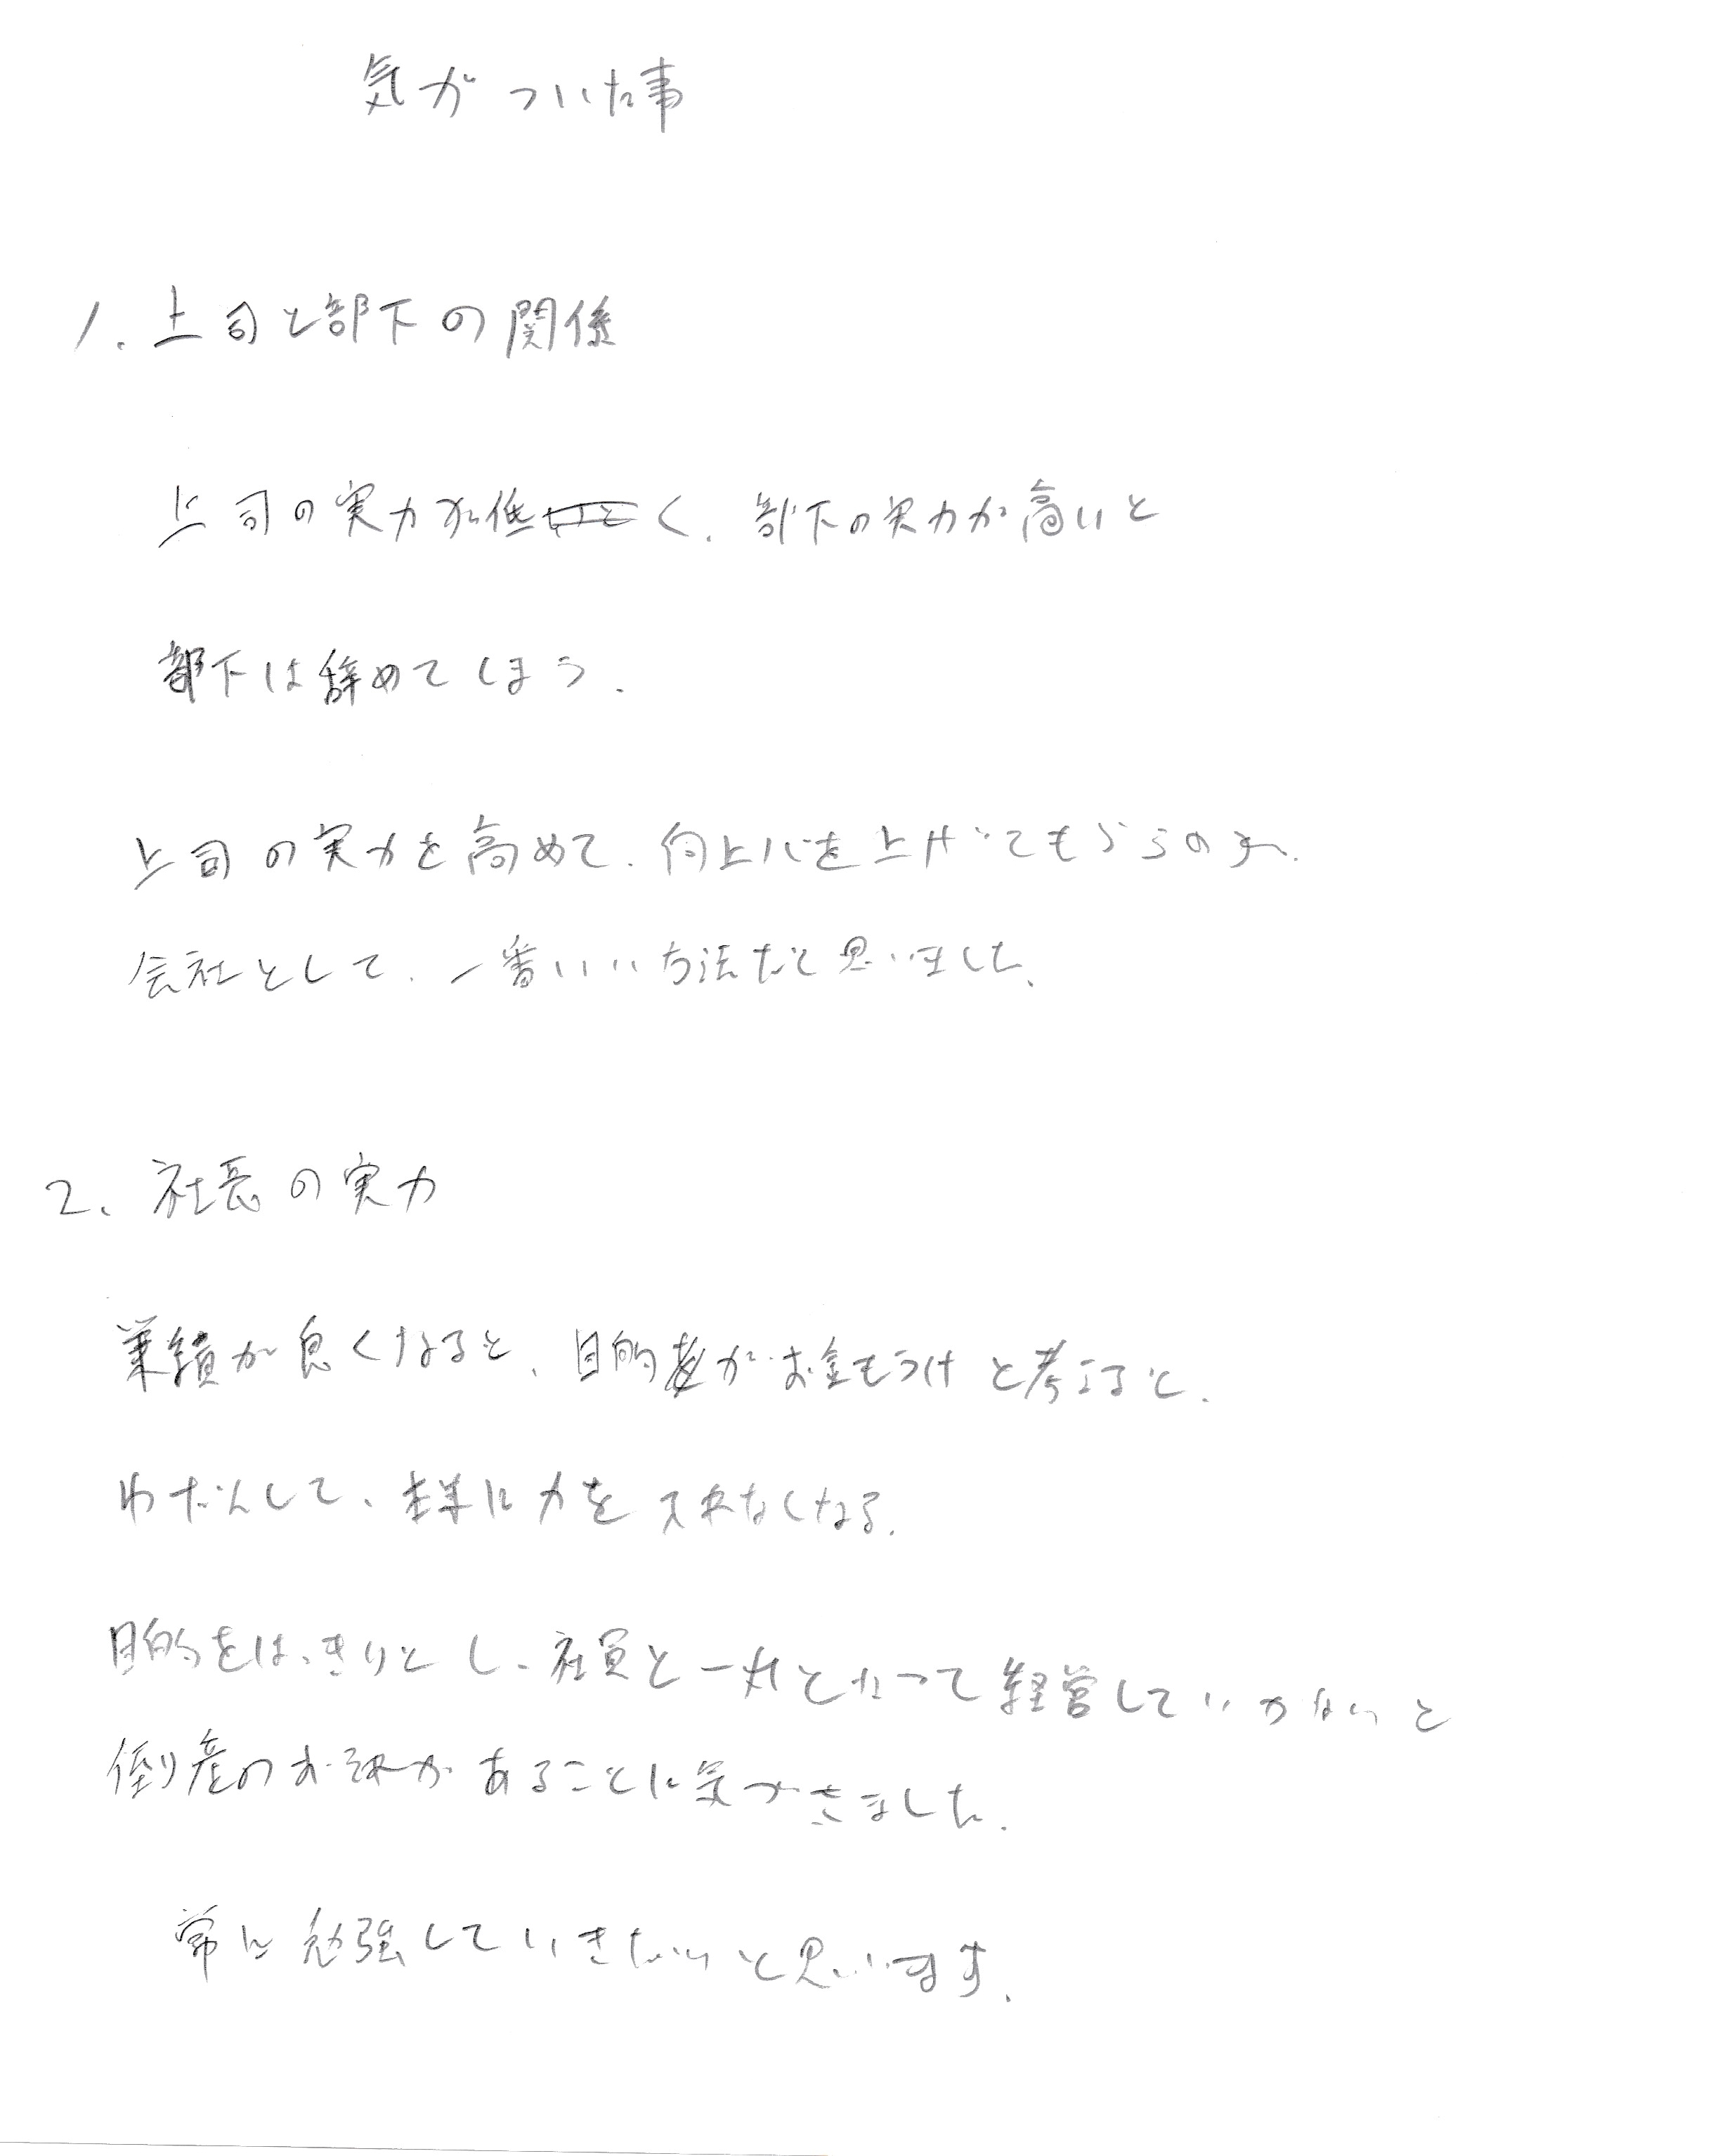 気がついた事
1. 上司と部下の関係
上司の実力が低く、部下の実力が高いと
部下は辞めてしまう。
上司の実力を高めて、向上心を上げてもらうのが、
会社として、一番いい方法だと思いました。
2. 社長の実力
業績が良くなると、目的がお金もうけと考えると、
ゆだんして、本業に力を入れなくなる。
目的をはっきりとし、社員と一丸となって経営していかないと
倒産のおそれがあることに気づきました。
常に勉強していきたいと思います。